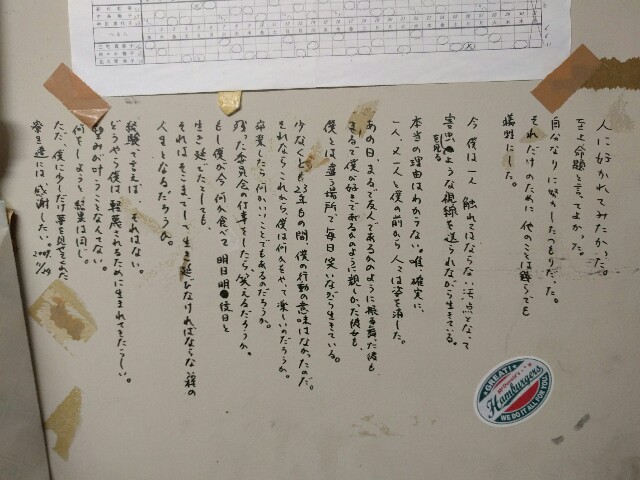 人に好かれてみたかった。
至上命題と言ってよかった。
自分なりに努力したつもりだった。
それだけのために 他のことは幾らでも
犠牲にした。
今 僕は一人 触れてはならない汚点となって
害虫を見るような視線を送られながら生きている。
本当の理由はわからない。唯、確実に、
一人、又一人と僕の前から人々は姿を消した。
あの日、まるで友人であるかのように振る舞った彼も
まるで僕が好きであるかのように親しかった彼女も、
僕とは違う場所で毎日笑いながら生きている。
少なくとも3年もの間、僕の行動の意味はなかったのだ。
それならこれから、僕は何をやって楽しいのだろうか。
卒業したら何かいいことでもあるのだろうか。
残った委員会の仕事をしたら笑えるだろうか。
もし僕が今何か食べて 明日明後日と
生き延びたとしても、
それはそこまでして生き延びなければならない程の
人生となるだろうか。
経験で言えば、それはない。
どうやら僕は、軽蔑されるために生まれてきたらしい。
望みが叶うことなんてない。
何をしようと結果は同じ。
ただ、僕に少しだけ夢を見せてくれた
寮生達には感謝したい。
GREAT!
McDonald's
Hamburgers
WE DO IT ALL FOR YOU